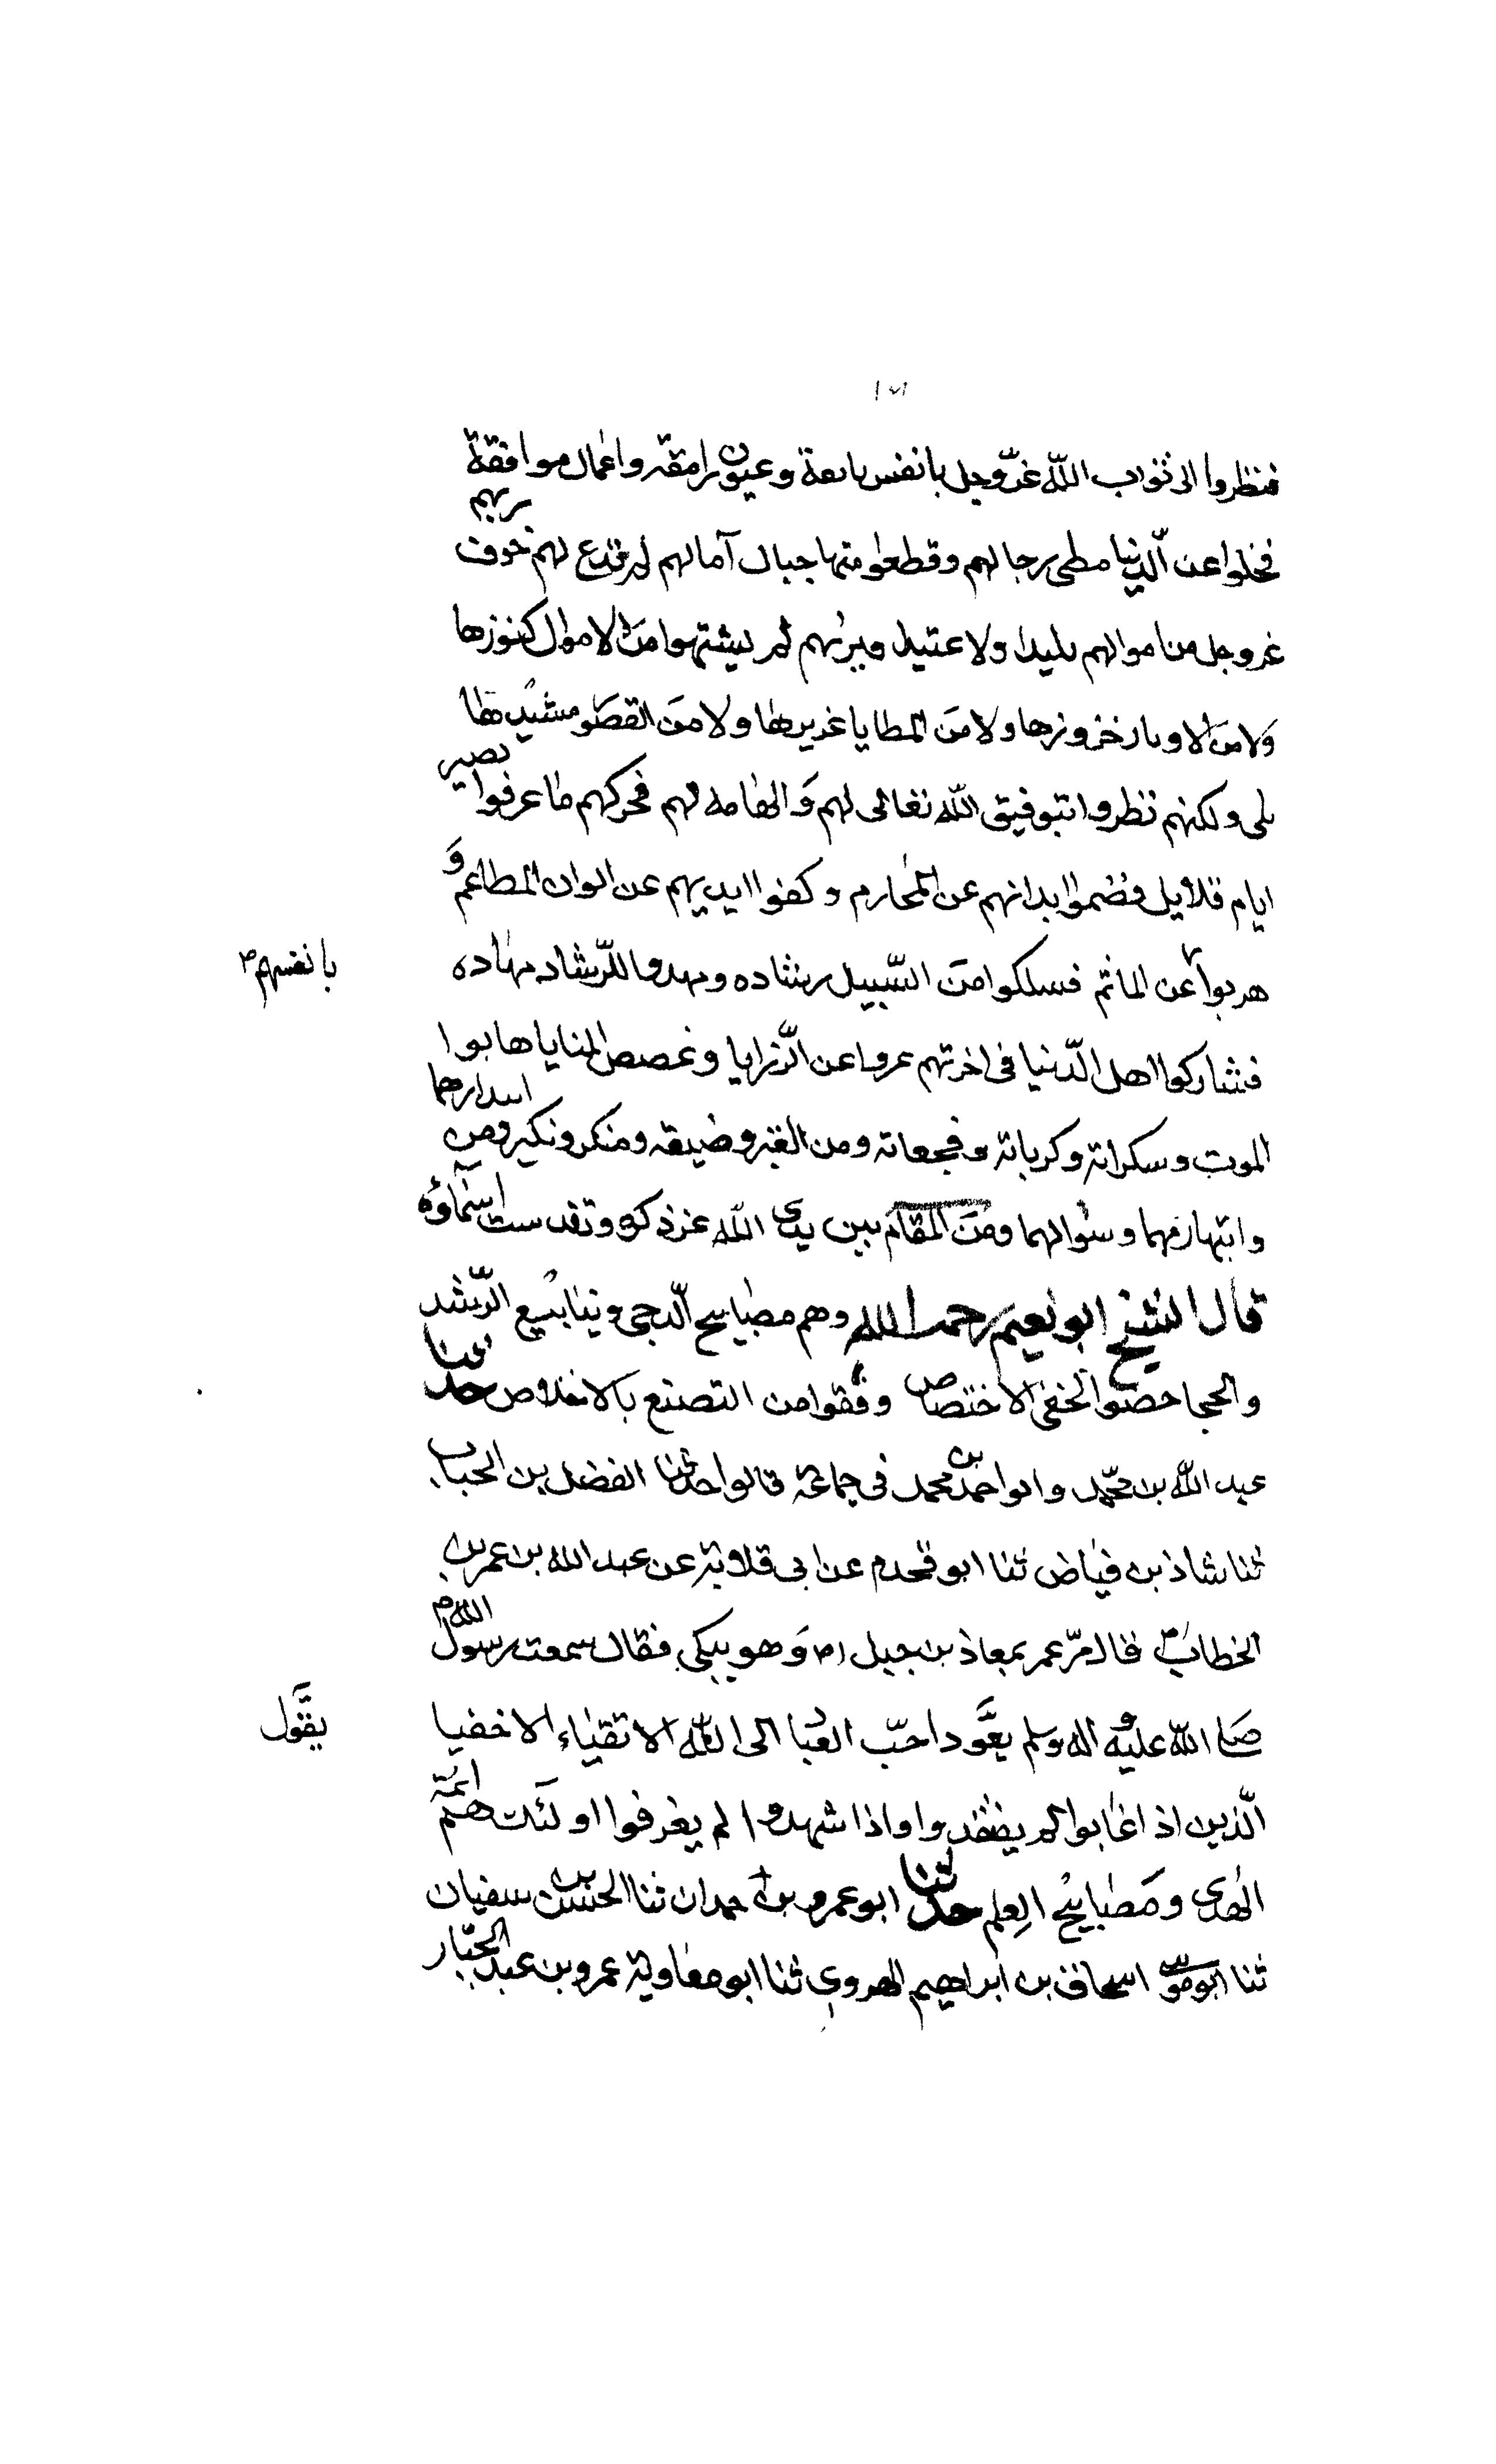 فنظروا الى ثواب الله عزّ وجل بانفس تايقة وعيون رامقة واعمال موافقة
فحلوا عن الدّنيا مطى رحالهم وقطعوا منها حبال آمالهم لم يدع لهم خوف ربهم
عز وجل من اموالهم تليدا ولا عتيدا وتبرئهم لم يشتهوا من الاموال كنوزها
ولا من الاوبار خزوزها ولا من المطايا غديرها ولا من القصور مشيدها
بلى ولكنهم نظروا بتوفيق الله تعالى لهم والهامه لهم فحركهم ما عرفوا بصبر
ايام قلايل فضموا ابدانهم عن المحارم وكفوا ايديهم عن الوان المطاعم و
هربوا عن الماثم فسلكوا من السّبيل رشاده ومهدوا للرّشاد مهاده
بانفسهم
فشاركوا اهل الدّنيا فى اخرتهم عزوا عن الرّزايا وغصص المنايا هابوا
الموت وسكراته وكرباته وفجعاته ومن القبر وضيقه ومنكر ونكير ومن ابتدارهما
وانتهارهما وسؤالهما ومن المقام بين يدى الله عز ذكره وتقدست اسماؤه
قال الشيخ ابو نعيم رحمه الله وهم مصابيح الدّجى وينابيع الرّشد
والحجا خصوا بخفى الاختصاص ونقوا من التصنع بالاخلاص حدثنا
عبد الله بن محمّد وابو احمد بن محمد فى جماعة قالوا حدثنا الفضل بن الحباب
ثنا شاذ بن فياض ثنا ابو قحذم عن ابى قلابة عن عبد الله بن عمر بن
الخطاب قال مرّ عمر بمعاذ بن جبل وهو يبكى فقال سمعت رسول الله
صلى الله عليه واله وسلم احبّ العباد الى الله الاتقياء الاخفيا
يقول
الّذين اذا غابوا لم يفتقدوا واذا شهدوا لم يعرفوا اولئك هم ائمة
الهدى ومصابيح العلم حدثنا ابو عمرو بن حمدان ثنا الحسن بن سفيان
ثنا ابو موسى اسحاق بن ابراهيم الهروى ثنا ابو معاوية عمرو بن عبد الجبّار